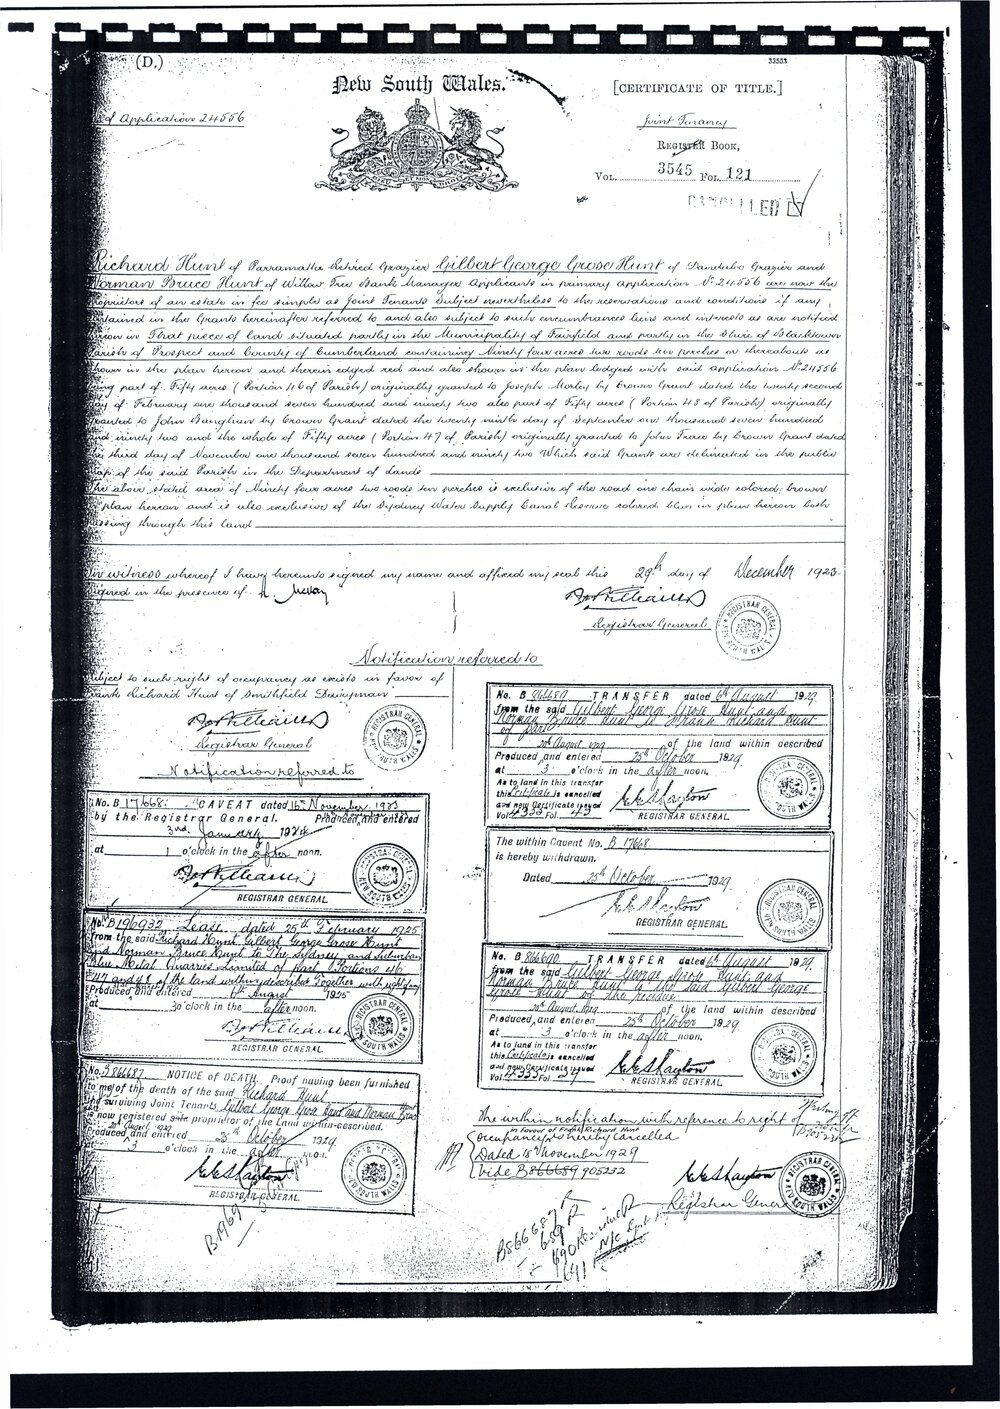 (D.)
33553
New South Wales.
[CERTIFICATE OF TITLE.]
of Application 24556
Joint Tenancy
REGISTER BOOK,
VOL. 3545 FOL. 121
CANCELLED
Richard Hunt of Parramatta Retired Grazier Gilbert George Grose Hunt of Grazier and
Norman Bruce Hunt of Willow Tree Bank Manager Applicants in primary Application No. 24556 are now the
Proprietors of an estate in fee simple as Joint Tenants subject nevertheless to the reservations and conditions if any
contained in the Grants hereinafter referred to and also subject to such encumbrances liens and interests as are notified
hereon in That piece of land situated partly in the Municipality of Fairfield and partly in the Shire of Blacktown
Parish of Prospect and County of Cumberland containing Ninety four acres two roods ten perches or thereabouts as
shown in the plan hereon and therein edged red and also shown in the plan lodged with said application No. 24556
being part of Fifty acres (Portion 46 of Parish) originally granted to Joseph Morley by Crown Grant dated the twenty second
day of February one thousand seven hundred and ninety two also part of Fifty acres (Portion 48 of Parish) originally
granted to John Bangham by Crown Grant dated the twenty ninth day of September one thousand seven hundred
and ninety two and the whole of Fifty acres (Portion 47 of Parish) originally granted to John Trace by Crown Grant dated
the third day of November one thousand seven hundred and ninety two Which said Grants are delineated in the public
map of the said Parish in the Department of Lands
The above stated area of Ninety four acres two roods ten perches is exclusive of the road one chain wide colored brown
plan hereon and is also exclusive of the Sydney Water Supply Canal Reserve colored blue in plan hereon both
passing through this land
In witness whereof I have hereunto signed my name and affixed my seal this 29th day of December 1923
Signed in the presence of
Registrar General
Notification referred to
Subject to such right of occupancy as exists in favor of
Frank Richard Hunt of Smithfield Dairyman
Registrar General
Notification referred to
No. B 17668 CAVEAT dated 16th November, 1923
by the Registrar General. Produced and entered
3rd January 1924
at 1 o'clock in the after noon.
REGISTRAR GENERAL
No. B196932 Lease dated 25th February 1925
from the said Richard Hunt Gilbert George Grose Hunt
and Norman Bruce Hunt to The Sydney and Suburban
Blue Metal Quarries Limited of part Portions 46
47 and 48 of the land within described Together with right of way
Produced and entered August 1925
at 30 o'clock in the after noon.
REGISTRAR GENERAL
No. B866687 NOTICE of DEATH. Proof having been furnished
to me of the death of the said Richard Hunt
the surviving Joint Tenants Gilbert George Grose Hunt and Norman Bruce Hunt
now registered sole proprietor of the Land within described.
Produced and entered 25th October 1929
at 3 o'clock in the after noon.
REGISTRAR GENERAL
No. B 866689 TRANSFER dated 6th August 1929
from the said Gilbert George Grose Hunt and
Norman Bruce Hunt to Frank Richard Hunt
of part
20th August 1929 of the land within described
Produced and entered 25th October 1929
at 3 o'clock in the after noon.
As to land in this transfer
this Certificate is cancelled
and new Certificate issued
Vol 4333 Fol. 43
REGISTRAR GENERAL
The within Caveat No. B 17668
is hereby withdrawn.
Dated 25th October 1929
REGISTRAR GENERAL.
No. B 866690 TRANSFER dated 6th August 1929
from the said Gilbert George Grose Hunt and
Norman Bruce Hunt to the said Gilbert George
Grose Hunt of the residue
20th August 1929 of the land within described
Produced and entered 25th October 1929
at 3 o'clock in the after noon.
As to land in this transfer
this Certificate is cancelled
and new Certificate issued
Vol 4333 Fol 39
REGISTRAR GENERAL
The within notification with reference to right of
in favour of Frank Richard Hunt
Occupancy is hereby cancelled
Dated 15 November 1929
Vide B866689 905232
Registrar General
B1969
B866687